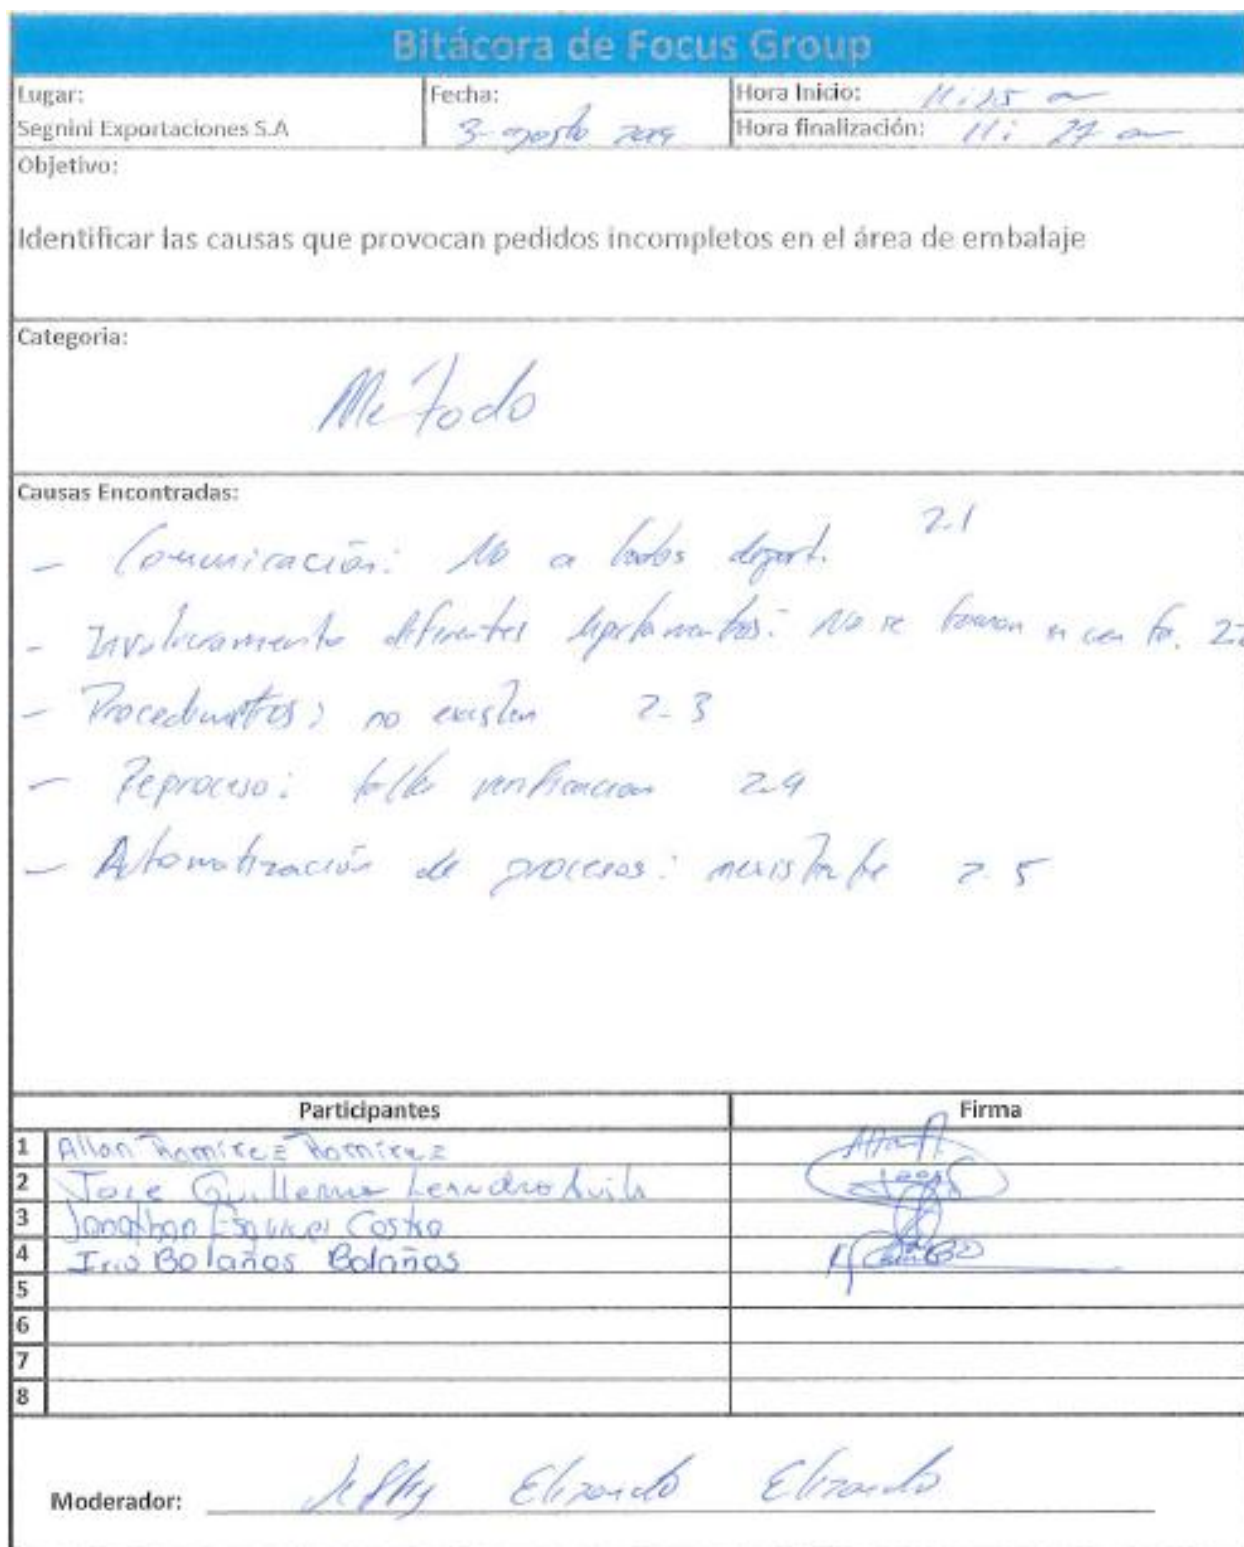 Bitácora de Focus Group
Lugar:
Segnini Exportaciones S.A
Fecha:
3-agosto 2019
Hora Inicio: 11:15 am
Hora finalización: 11: 27 am
Objetivo:
Identificar las causas que provocan pedidos incompletos en el área de embalaje
Categoria:
Método
Causas Encontradas:
- Comunicación: No a todos depart. 2.1
- Involucramiento diferentes departamentos: No se toman en cuenta.
- Procedimientos: no existen 2-3
- Reproceso: verificacion 2-4
- Automatización de procesos: inexistente 2.5
Participantes
Firma
1 Allan Ramirez Ramirez
2 Jose Guillermo
3 Jonathan Esquivel
4 Bolaños Bolaños
5
6
7
8
Moderador: Elizondo Elizondo